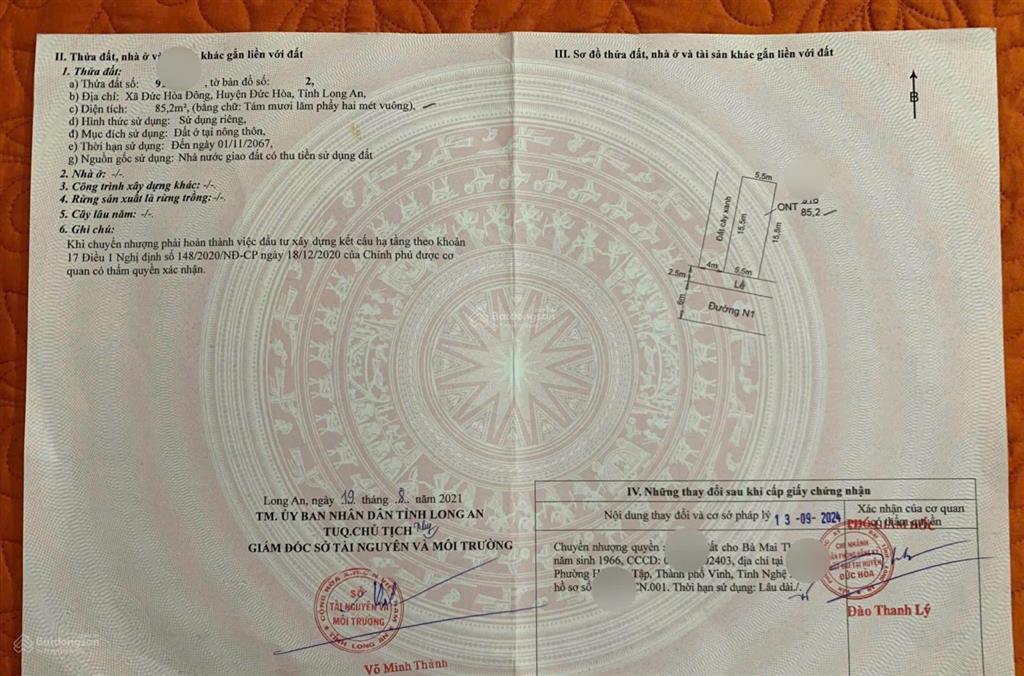 II. Thửa đất, nhà ở v khác gắn liền với đất
1. Thửa đất:
a) Thửa đất số: 9 , tờ bản đồ số: 2,
b) Địa chỉ: Xã Đức Hòa Đông, Huyện Đức Hòa, Tỉnh Long An,
c) Diện tích: 85,2m², (bằng chữ: Tám mươi lăm phẩy hai mét vuông),
d) Hình thức sử dụng: Sử dụng riêng,
đ) Mục đích sử dụng: Đất ở tại nông thôn,
e) Thời hạn sử dụng: Đến ngày 01/11/2067,
g) Nguồn gốc sử dụng: Nhà nước giao đất có thu tiền sử dụng đất
2. Nhà ở: -/-.
3. Công trình xây dựng khác: -/-.
4. Rừng sản xuất là rừng trồng: -/-.
5. Cây lâu năm: -/-.
6. Ghi chú:
Khi chuyển nhượng phải hoàn thành việc đầu tư xây dựng kết cấu hạ tầng theo khoản
17 Điều 1 Nghị định số 148/2020/NĐ-CP ngày 18/12/2020 của Chính phủ được cơ
quan có thẩm quyền xác nhận.
Long An, ngày 19 tháng 8 năm 2021
TM. ỦY BAN NHÂN DÂN TỈNH LONG AN
TUQ.CHỦ TỊCH
GIÁM ĐỐC SỞ TÀI NGUYÊN VÀ MÔI TRƯỜNG
CỘNG HÒA X.H.C.N VIỆT NAM
SỞ
TÀI NGUYÊN VÀ
MÔI TRƯỜNG
TỈNH LONG AN
Võ Minh Thành
III. Sơ đồ thửa đất, nhà ở và tài sản khác gắn liền với đất
B
5,5m
Đất cây xanh
15,5m
15,5m
ONT
85,2
4m
5,5m
2,5m
Lề
6m
Đường N1
Batdongsan
IV. Những thay đổi sau khi cấp giấy chứng nhận
Nội dung thay đổi và cơ sở pháp lý
13-09-2024
Xác nhận của cơ quan
có thẩm quyền
PHÓ GIÁM ĐỐC
Chuyển nhượng quyền ất cho Bà Mai T
năm sinh 1966, CCCD: 02403, địa chỉ tại
Phường H Tập, Thành phố Vinh, Tỉnh Nghệ
hồ sơ số CN.001. Thời hạn sử dụng: Lâu dài./.
CHI NHÁNH
ĐỨC HÒA
Đào Thanh Lý
Batdongsan